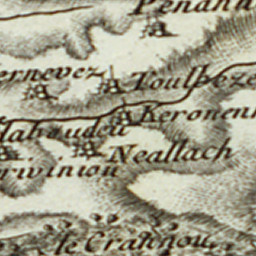 Penaha
ernevez
Toulbeze
Keronen
labaudeu
Neallach
rwiniou
le Crannou